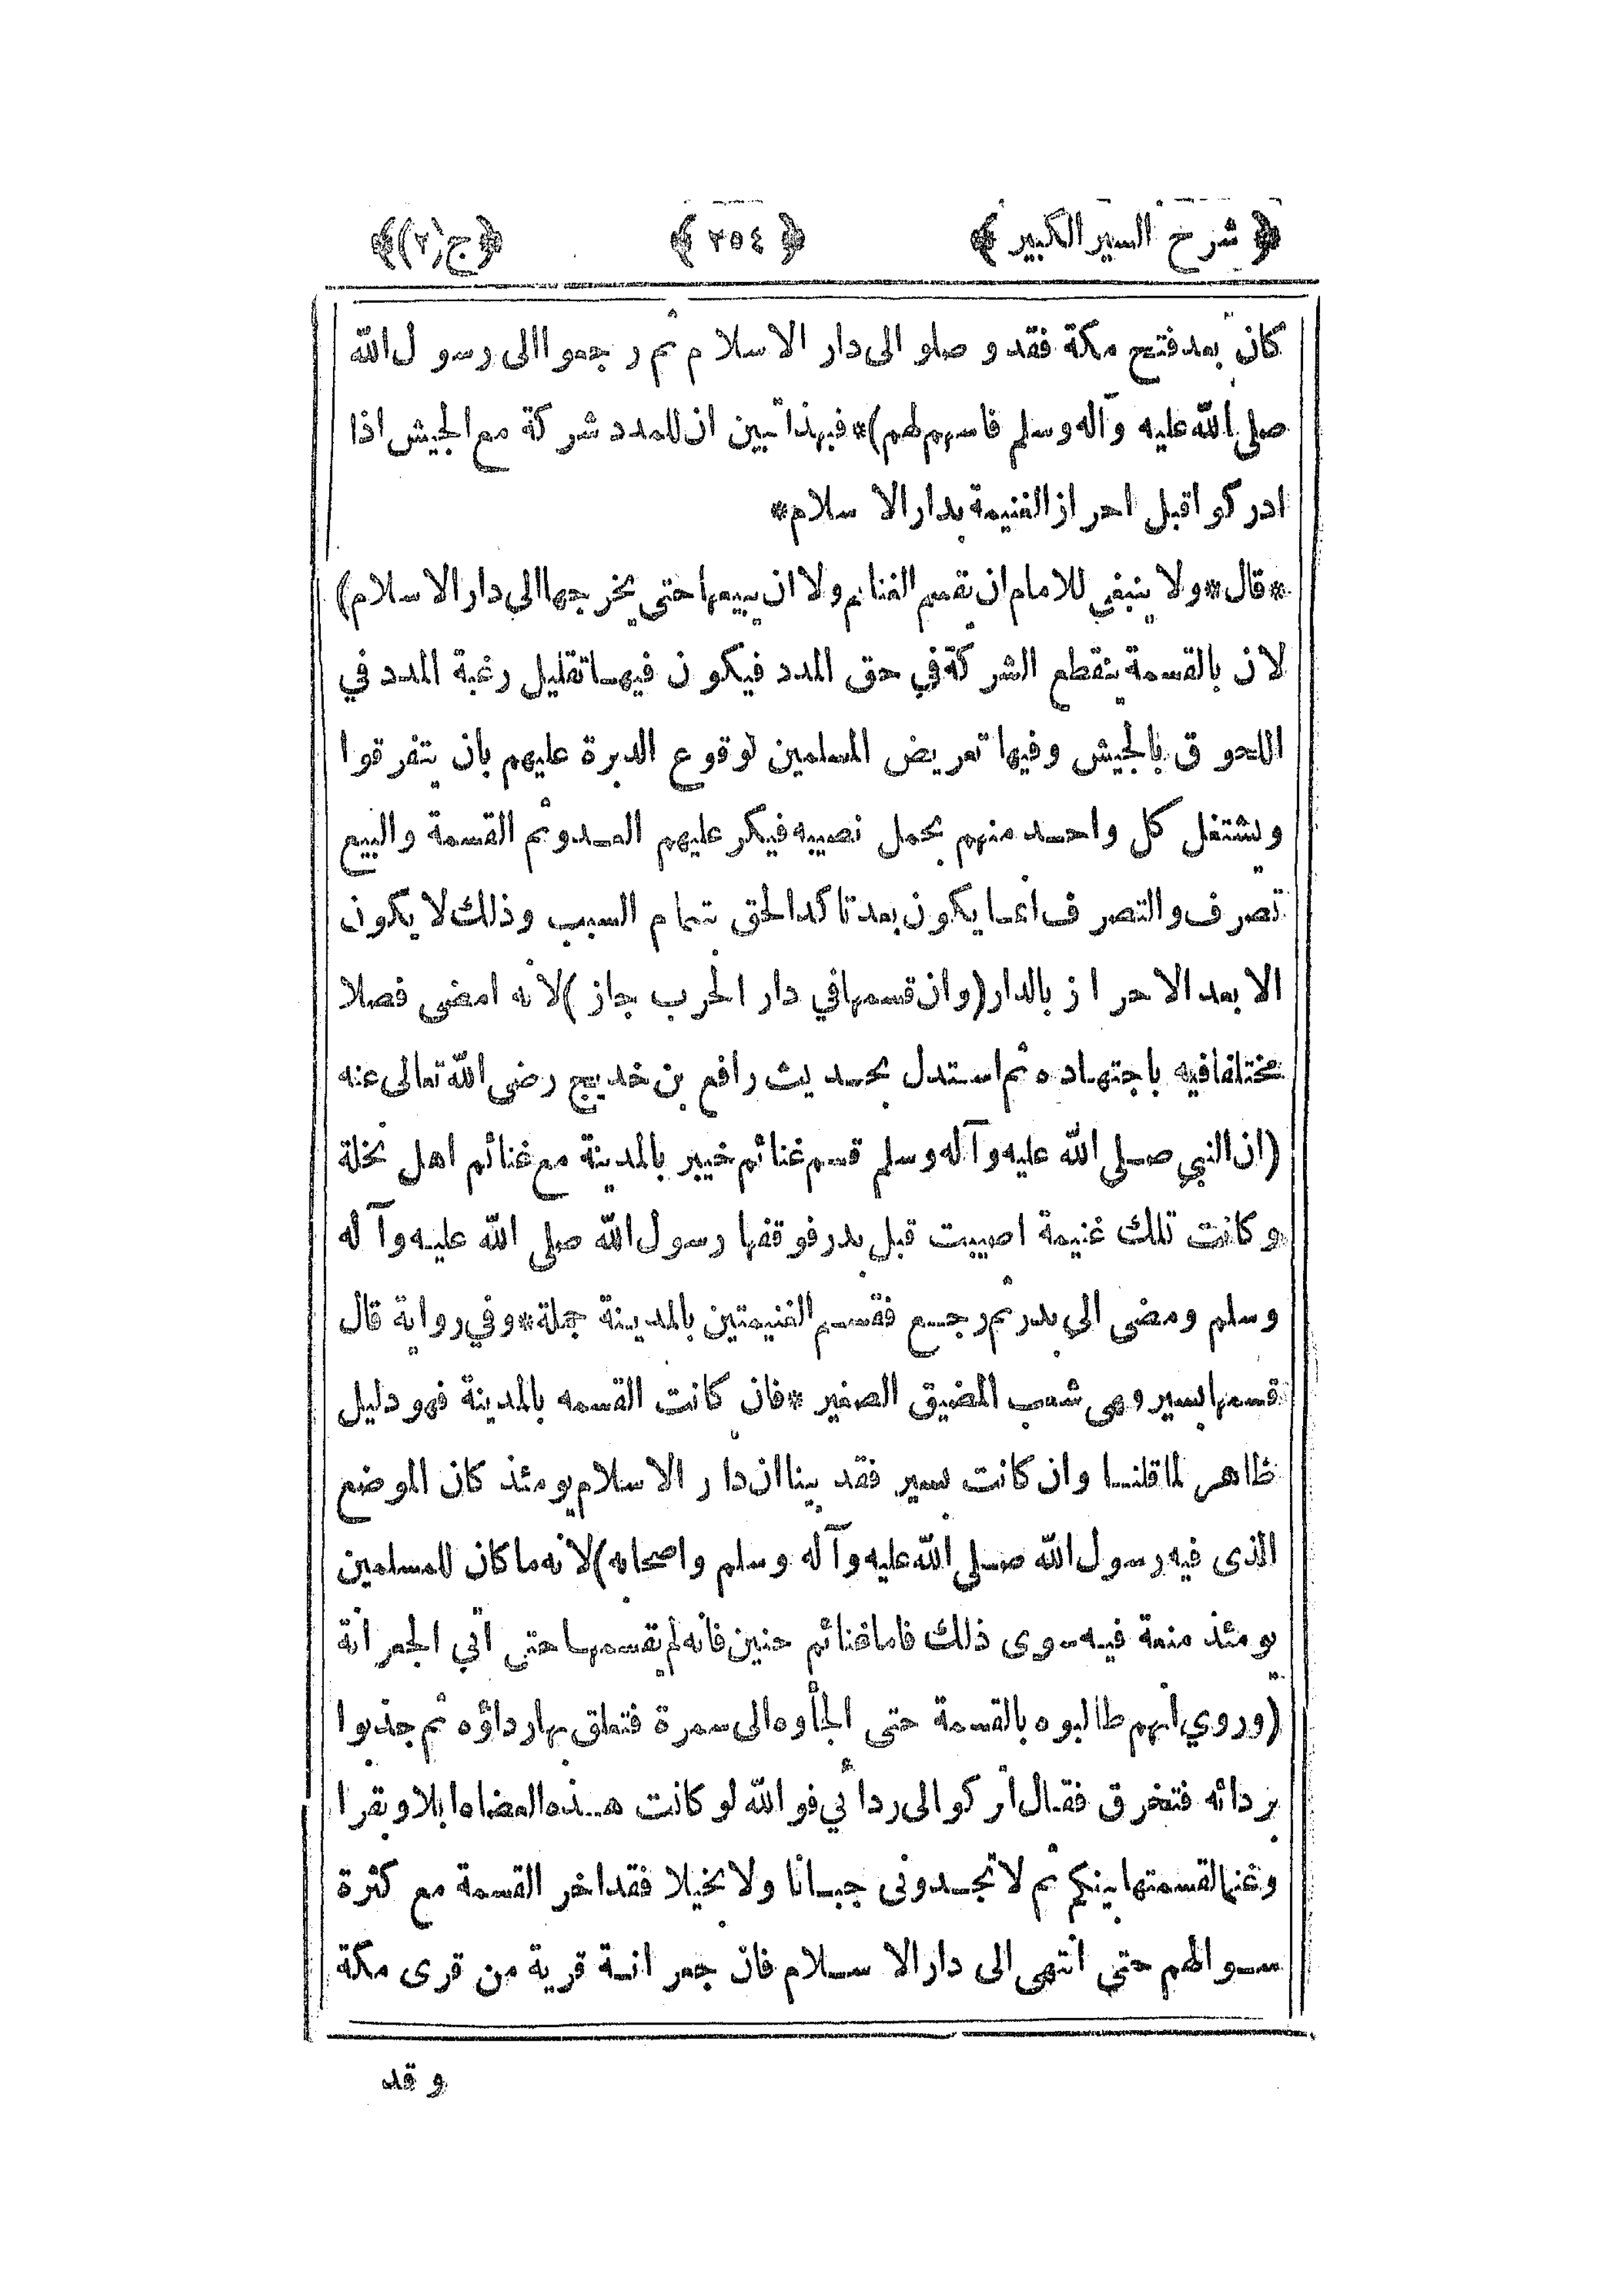 ﴿ شرح السير الكبير ﴾ ﴿ ٢٥٤ ﴾ ﴿ج(٢)﴾
كان بعد فتح مكة فقد وصلو الى دار الاسلام ثم رجعوا الى رسول الله
صلى الله عليه وآله وسلم فاسهم لهم)*فبهذا تبين ان للمدد شركة مع الجيش اذا
ادركوا قبل احراز الغنيمة بدار الاسلام*
*قال*ولا ينبغي للامام ان يقسم الغنائم ولا ان يبيعها حتى يخرجها الى دار الاسلام)
لان بالقسمة ينقطع الشركة في حق المدد فيكون فيها تقليل رغبة المدد في
اللحوق بالجيش وفيها تعريض المسلمين لوقوع الدبرة عليهم بان يتفرقوا
ويشتغل كل واحد منهم بحمل نصيبه فيكر عليهم العدو ثم القسمة والبيع
تصرف والتصرف انما يكون بعد تاكد الحق بتمام السبب وذلك لا يكون
الا بعد الاحراز بالدار(وان قسمها في دار الحرب جاز)لانه امضى فصلا
مختلفا فيه باجتهاده ثم استدل بحديث رافع بن خديج رضى الله تعالى عنه
(ان النبي صلى الله عليه وآله وسلم قسم غنائم خيبر بالمدينة مع غنائم اهل نخلة
وكانت تلك غنيمة اصيبت قبل بدر فوقفها رسول الله صلى الله عليه وآله
وسلم ومضى الى بدر ثم رجع فقسم الغنيمتين بالمدينة جملة*وفي رواية قال
قسمها بسير وهى شعب المضيق الصغير*فان كانت القسمه بالمدينة فهو دليل
ظاهر لما قلنا وان كانت بسير فقد بينا ان دار الاسلام يومئذ كان الموضع
الذى فيه رسول الله صلى الله عليه وآله وسلم واصحابه)لانه ما كان للمسلمين
يومئذ منعة فيه سوى ذلك فاما غنائم حنين فانه لم يقسمها حتى اتى الجعرانة
(وروي انهم طالبوه بالقسمة حتى الجأوه الى سمرة فتعلق بها رداؤه ثم جذبوا
بردائه فتخرق فقال اتركوا لى ردائي فو الله لو كانت هذه العضاه ابلا وبقرا
وغنما لقسمتها بينكم ثم لا تجدونى جبانا ولا بخيلا فقد اخر القسمة مع كثرة
سوالهم حتى انتهى الى دار الاسلام فان جعرانة قرية من قرى مكة
وقد